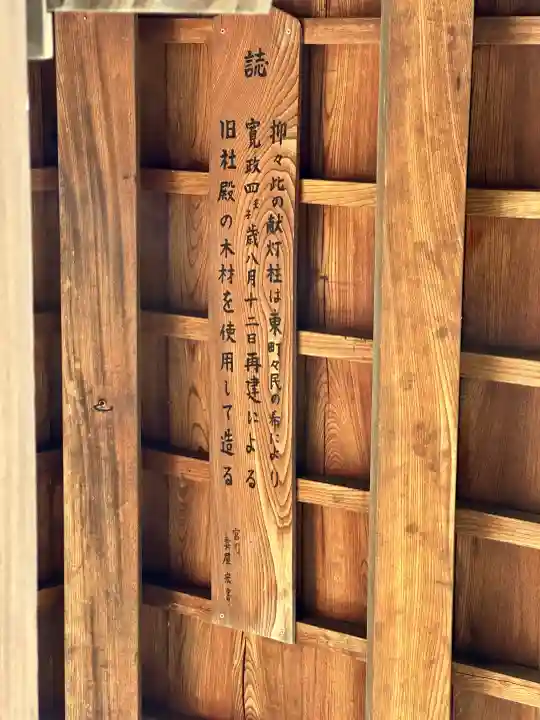 誌
抑々此の献灯柱は東町々民の布により
寛政四壬子歳八月十二日再建による
旧社殿の木材を使用して造る
宮司